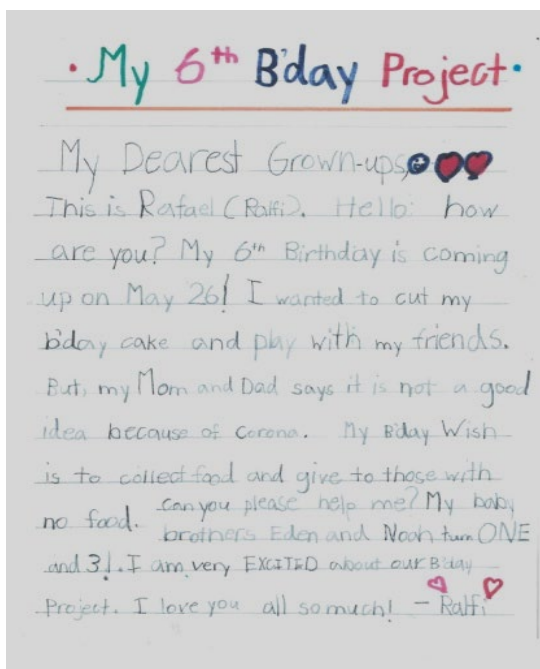 • My 6th B'day Project •
My Dearest Grown-ups,
This is Rafael (Ralfi). Hello: how
are you? My 6th Birthday is coming
up on May 26! I wanted to cut my
b'day cake and play with my friends.
But, my Mom and Dad says it is not a good
idea because of corona. My B'day Wish
is to collect food and give to those with
no food. can you please help me? My baby
brothers Eden and Noah turn ONE
and 3!. I am very EXCITED about our B'day
Project. I love you all so much! - Ralfi